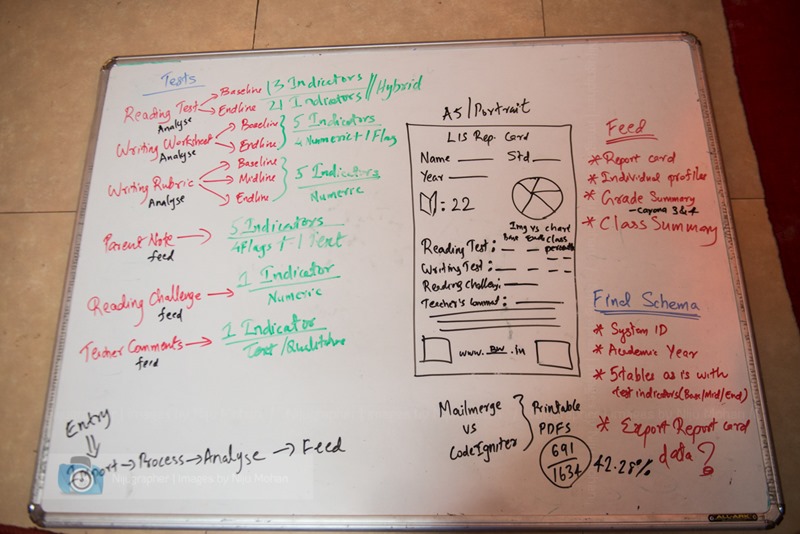 Tests
Reading Test
Analyse
Baseline
Endline
13 Indicators
21 Indicators
Hybrid
Writing Worksheet
Analyse
Baseline
Endline
5 Indicators
4 Numeric + 1 Flag
Writing Rubric
Analyse
Baseline
Midline
Endline
5 Indicators
Numeric
Parent Note
feed
5 Indicators
4 Flags + 1 Text
Reading Challenge
feed
1 Indicator
Numeric
Teacher Comments
feed
1 Indicator
Text /
Entry
Import → Process → Analyse → Feed
A5/Portrait
LIS Rep. Card
Name Std
Year
: 22
Img vs chart
Base Endl class
Reading Test:
Writing Test:
Reading Challenge:
Teacher's Comment:
www. BW .in
Mailmerge
vs
CodeIgniter
Printable
PDFs
691
1634
42.28%
Feed
* Report card
* Individual profiles
* Grade Summary
* Class Summary
Final Schema
* System ID
* Academic Year
* 5 tables as is with
test indicators (Base/Mid/End)
* Export Report card
data?